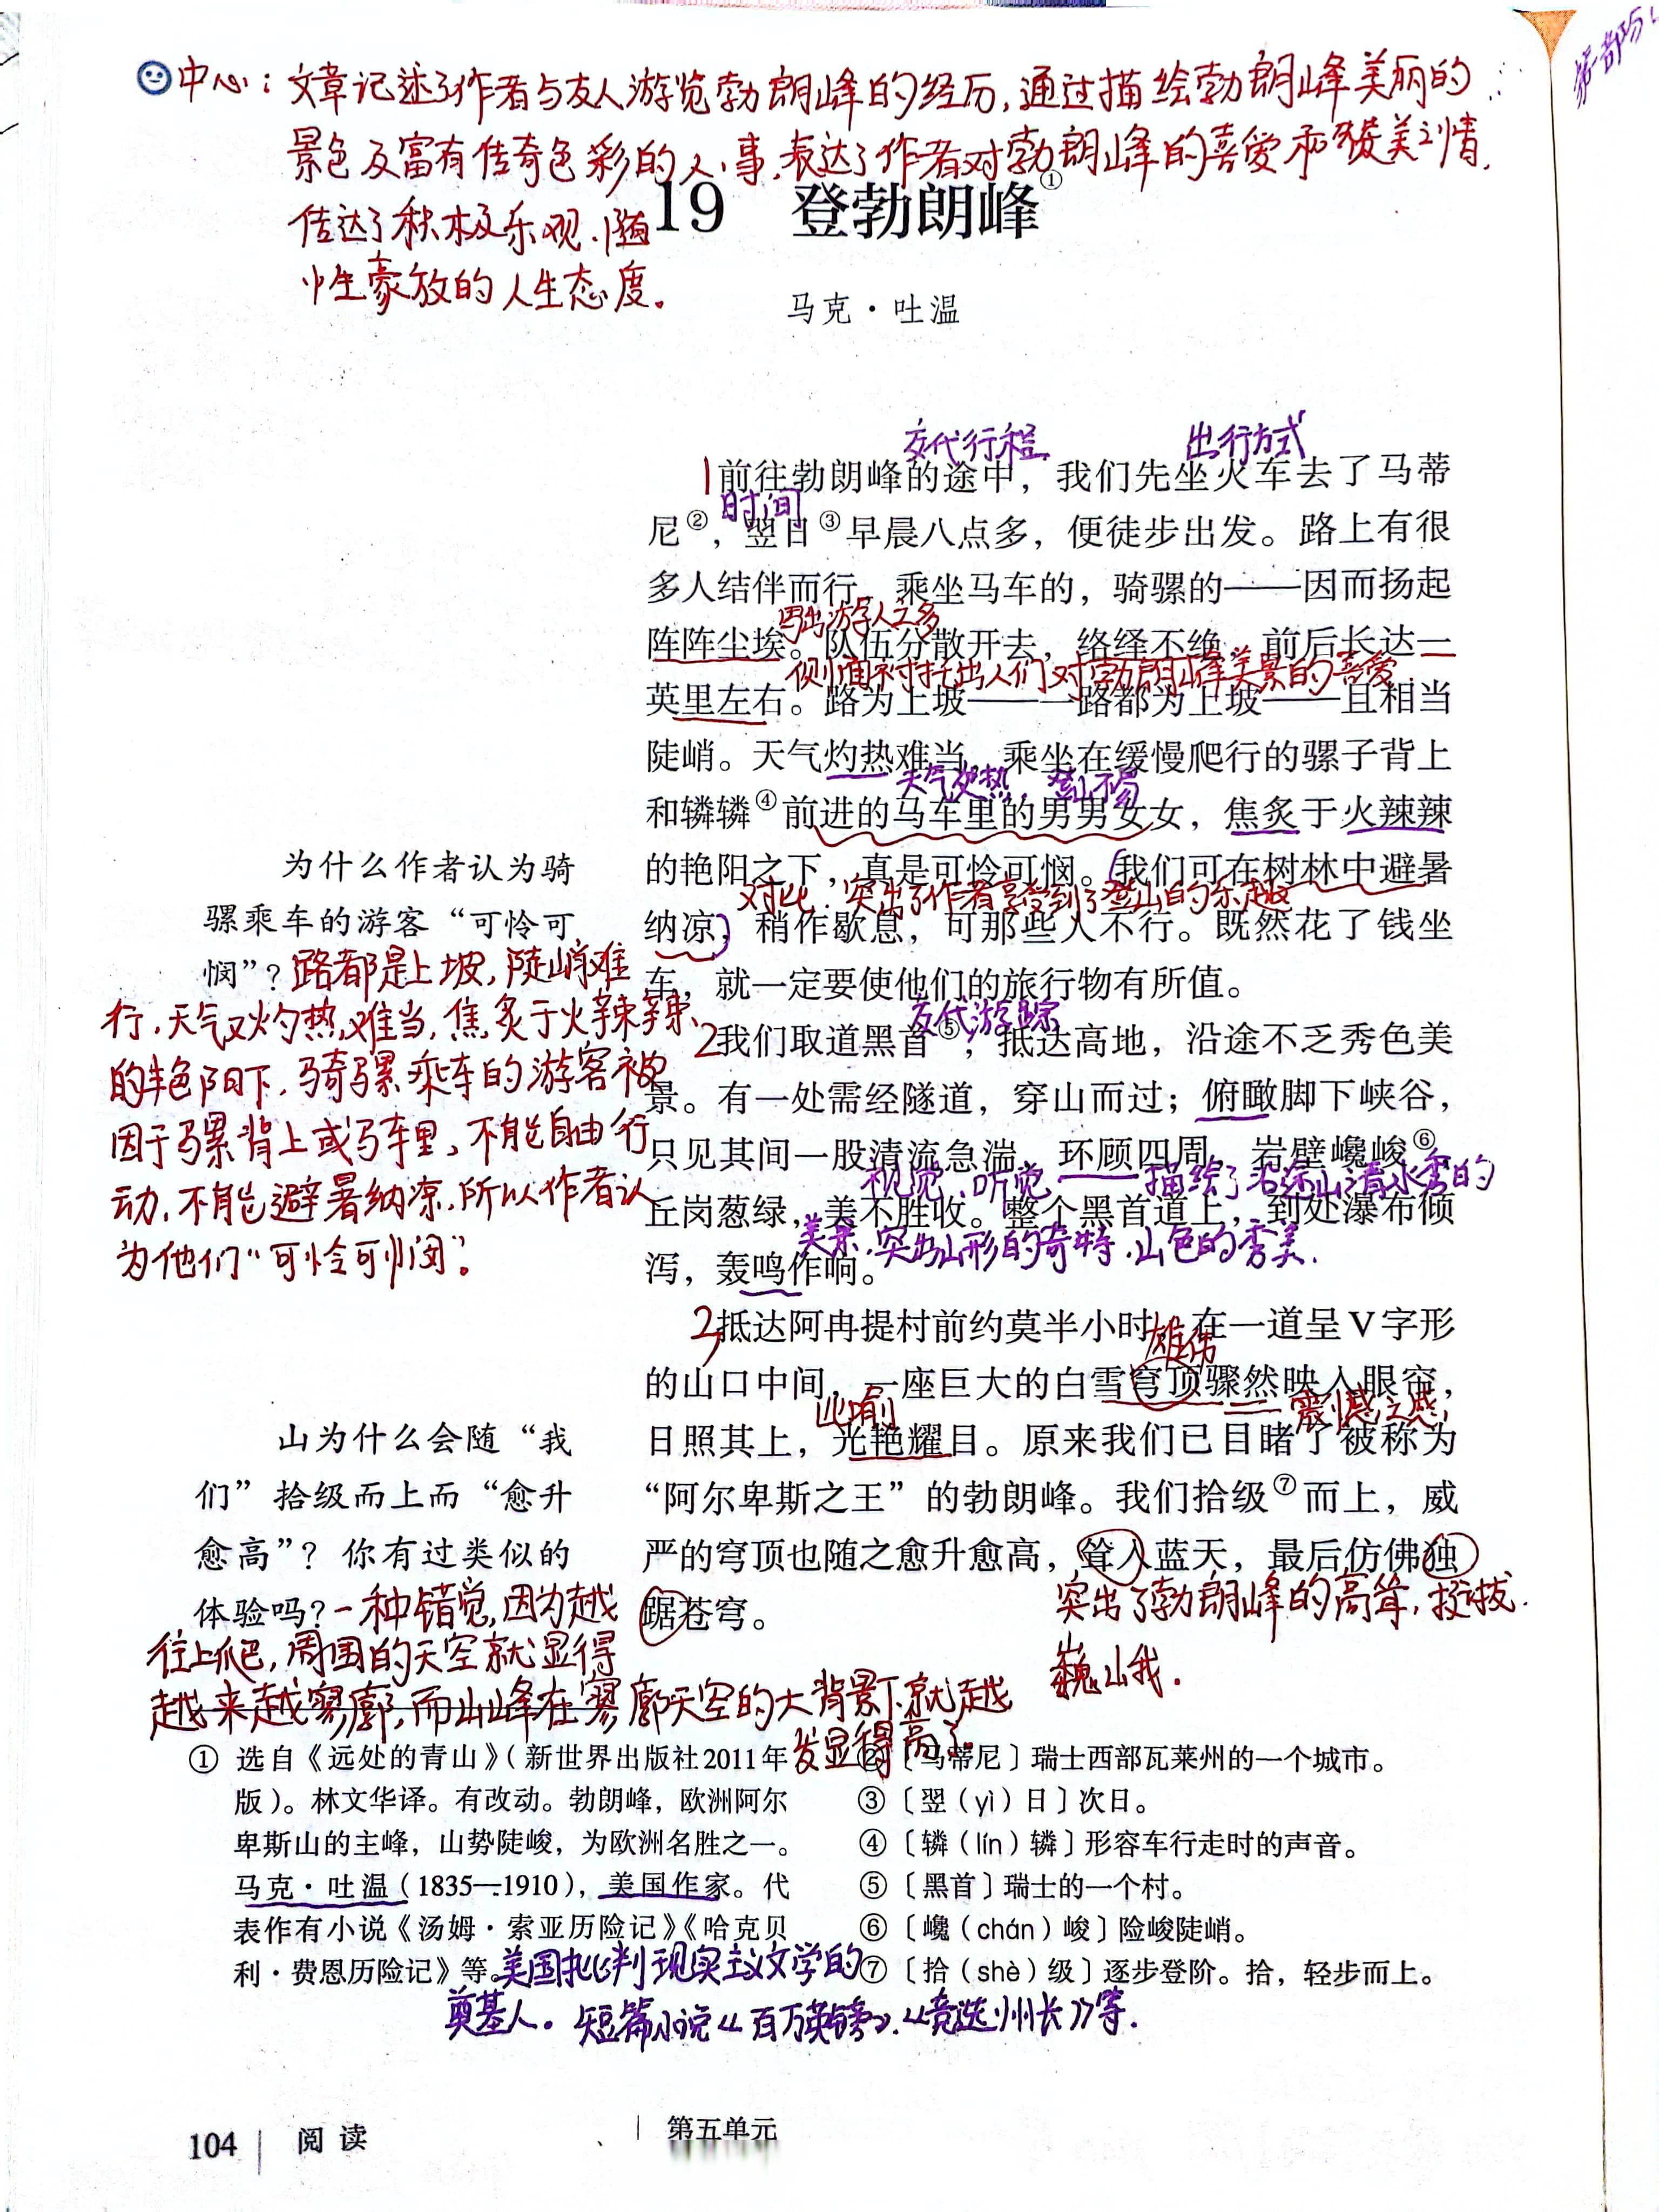 中心：文章记述了作者与友人游览勃朗峰的经历，通过描绘勃朗峰美丽的
景色及富有传奇色彩的人事，表达了作者对勃朗峰的喜爱和赞美之情，
传达了积极乐观、随
性豪放的人生态度。
19 登勃朗峰①
马克·吐温
交代行程 出行方式
1前往勃朗峰的途中，我们先坐火车去了马蒂
时间
尼②，翌日③早晨八点多，便徒步出发。路上有很
多人结伴而行，乘坐马车的，骑骡的——因而扬起
写出游人之多
阵阵尘埃。队伍分散开去，络绎不绝，前后长达一
侧面衬托出人们对勃朗峰美景的喜爱
英里左右。路为上坡——一路都为上坡——且相当
陡峭。天气灼热难当，乘坐在缓慢爬行的骡子背上
天气炎热，登山不易
和辚辚④前进的马车里的男男女女，焦炙于火辣辣
的艳阳之下，真是可怜可悯。我们可在树林中避暑
对比：突出了作者享受到了登山的乐趣
纳凉，稍作歇息，可那些人不行。既然花了钱坐
车，就一定要使他们的旅行物有所值。
为什么作者认为骑
骡乘车的游客“可怜可
悯”？路都是上坡，陡峭难
行，天气又灼热难当，焦炙于火辣辣
的艳阳下，骑骡乘车的游客被
困于骡背上或马车里，不能自由行
动，不能避暑纳凉，所以作者认
为他们“可怜可悯”。
交代游踪
2我们取道黑首⑤，抵达高地，沿途不乏秀色美
景。有一处需经隧道，穿山而过；俯瞰脚下峡谷，
只见其间一股清流急湍，环顾四周，岩壁巉峻⑥，
视觉、听觉——描绘了沿途山清水秀的
丘岗葱绿，美不胜收。整个黑首道上，到处瀑布倾
美景，突出山形的奇特，山色的秀美.
泻，轰鸣作响。
3抵达阿冉提村前约莫半小时，在一道呈V字形
雄伟
的山口中间，一座巨大的白雪穹顶骤然映入眼帘，
比喻 震憾之感
日照其上，光艳耀目。原来我们已目睹了被称为
“阿尔卑斯之王”的勃朗峰。我们拾级⑦而上，威
严的穹顶也随之愈升愈高，耸入蓝天，最后仿佛独
踞苍穹。
突出了勃朗峰的高耸，挺拔.
巍峨.
山为什么会随“我
们”拾级而上而“愈升
愈高”？你有过类似的
体验吗？一种错觉，因为越
往上爬，周围的天空就显得
越来越寥廓，而山峰在寥廓天空的大背景下就越
发显得高了。
① 选自《远处的青山》（新世界出版社2011年
版）。林文华译。有改动。勃朗峰，欧洲阿尔
卑斯山的主峰，山势陡峻，为欧洲名胜之一。
马克·吐温（1835—1910），美国作家。代
表作有小说《汤姆·索亚历险记》《哈克贝
利·费恩历险记》等。美国批判现实主义文学的
奠基人。短篇小说《百万英镑》、《竞选州长》等.
②〔马蒂尼〕瑞士西部瓦莱州的一个城市。
③〔翌（yì）日〕次日。
④〔辚（lín）辚〕形容车行走时的声音。
⑤〔黑首〕瑞士的一个村。
⑥〔巉（chán）峻〕险峻陡峭。
⑦〔拾（shè）级〕逐步登阶。拾，轻步而上。
104 阅读 第五单元